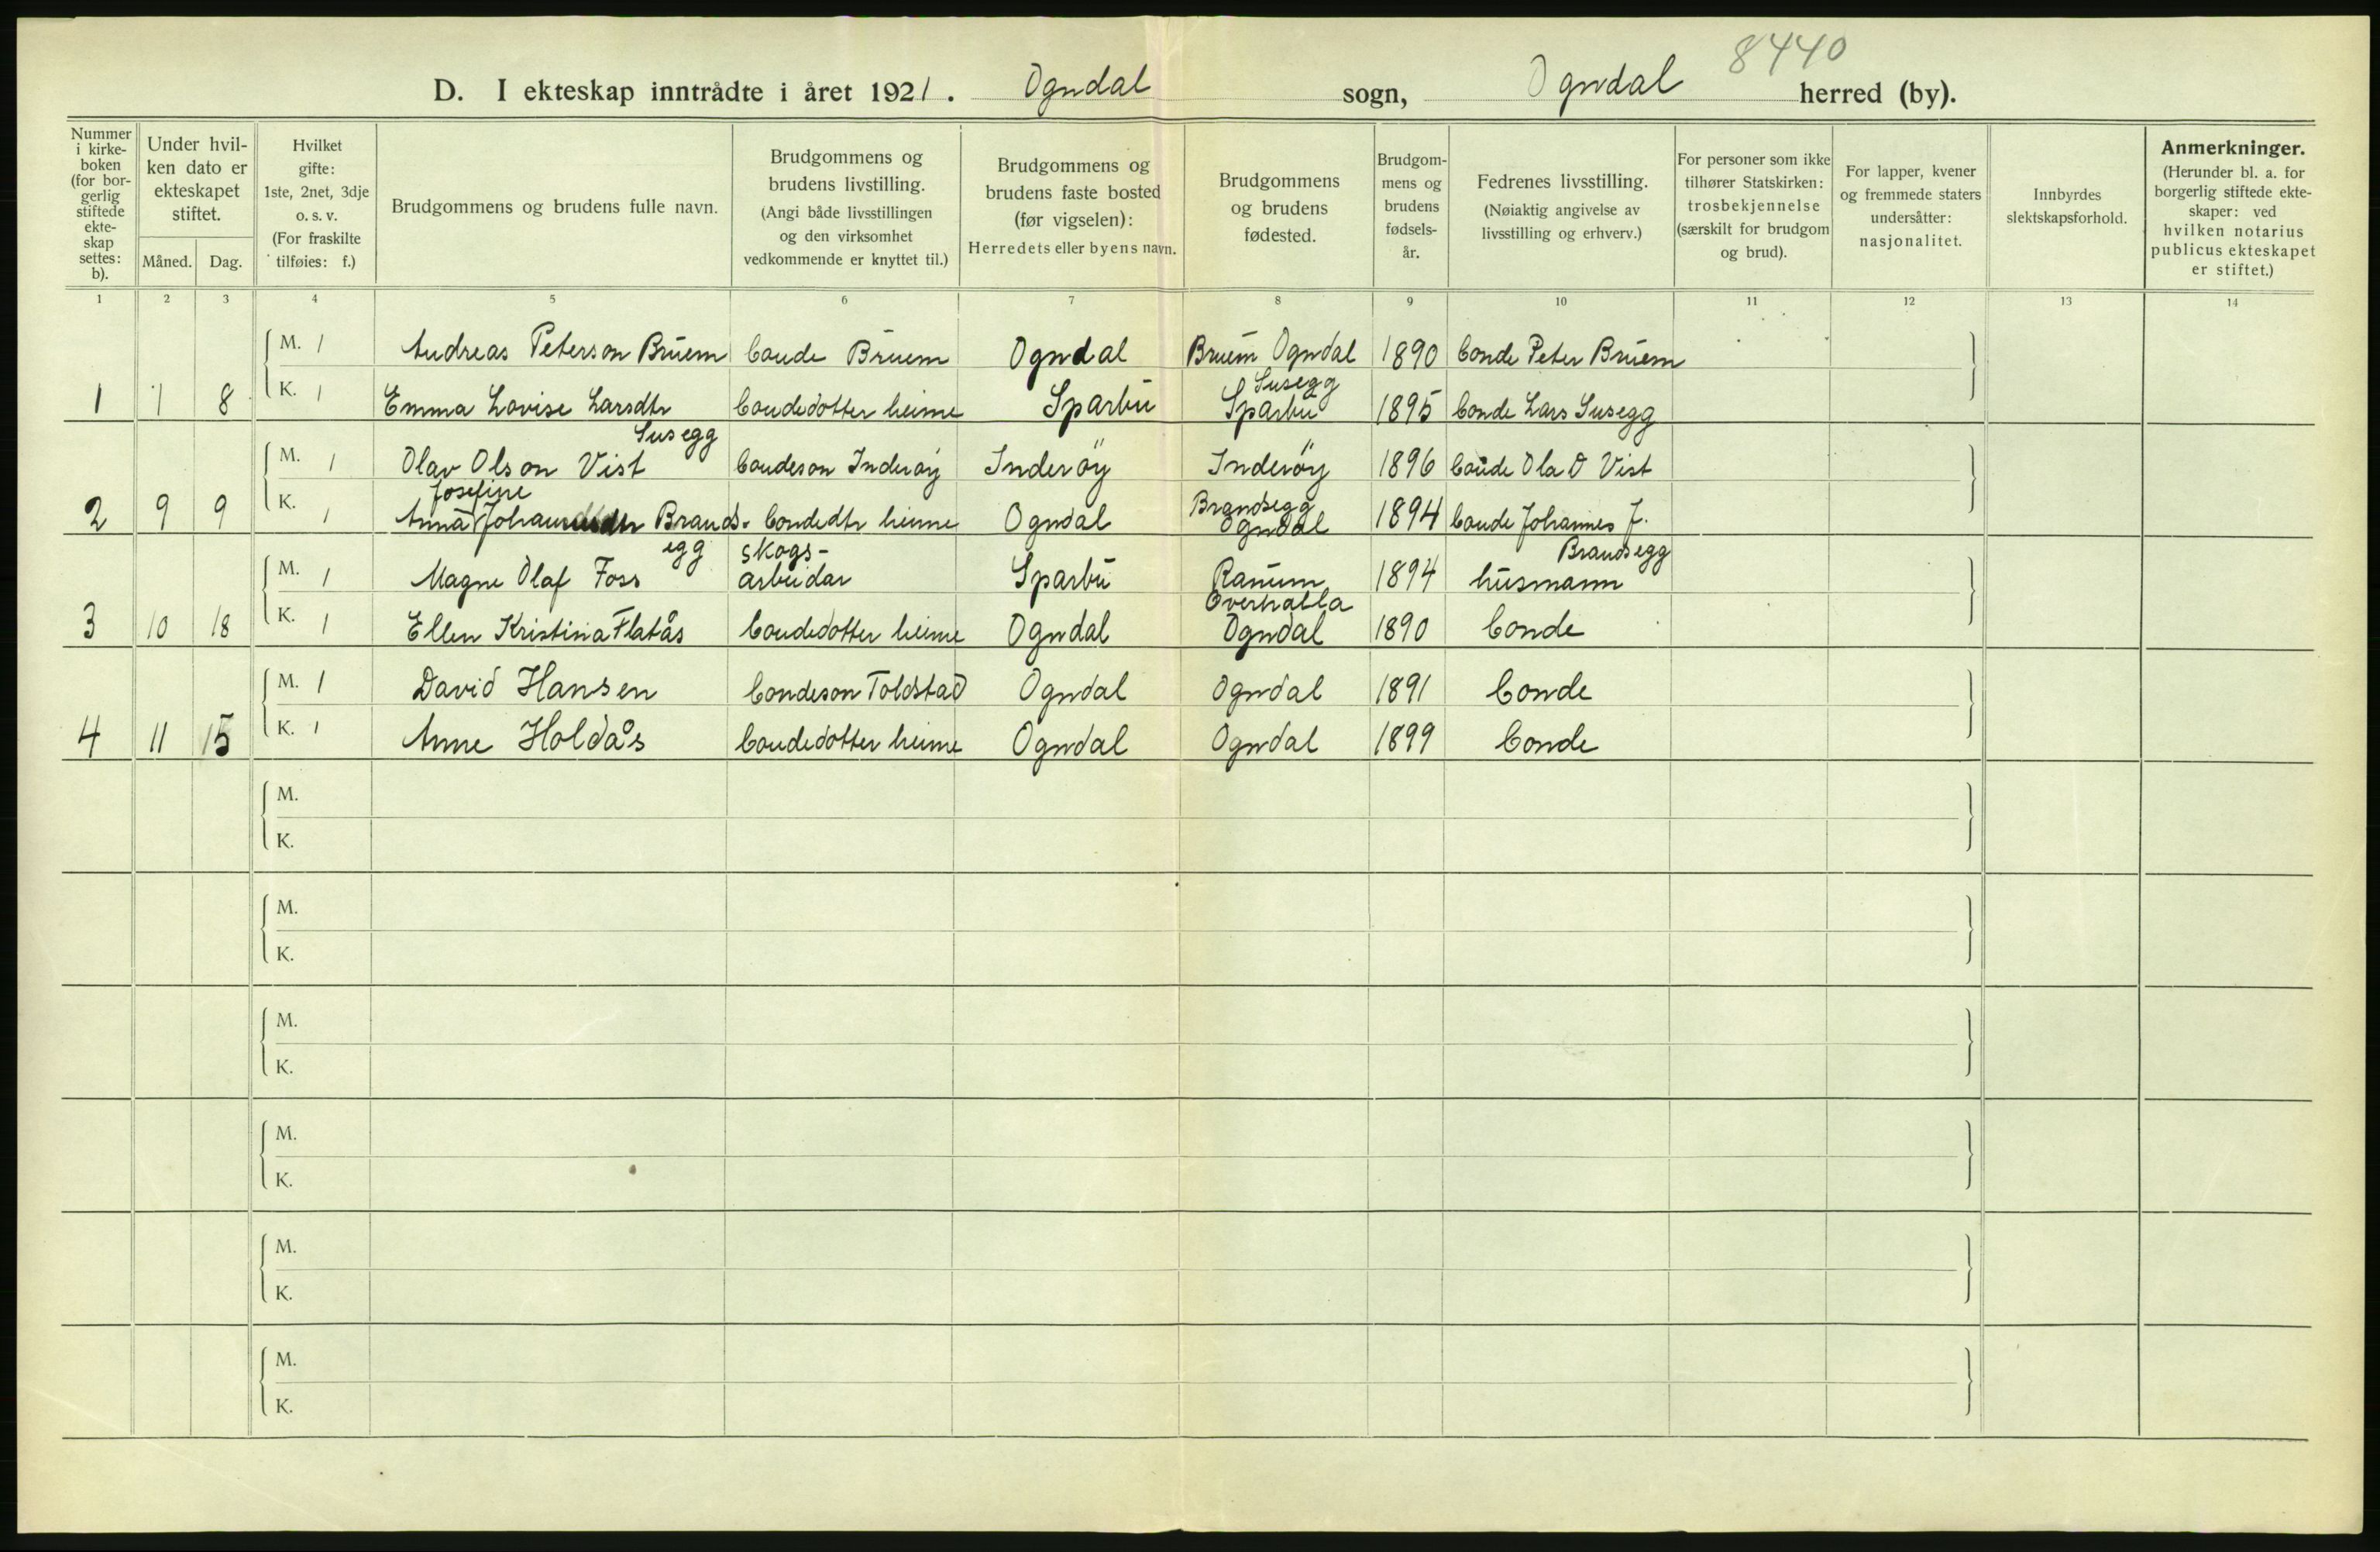 8440
D. I ekteskap inntrådte i året 1921. Ogndal sogn, Ogndal herred (by).
Nummer i kirke- boken (for bor- gerlig stiftede ekte- skap settes: b).
Under hvil- ken dato er ekteskapet stiftet.
Måned. Dag.
Hvilket gifte: 1ste, 2net, 3dje o. s. v. (For fraskilte tilføies: f.)
Brudgommens og brudens fulle navn.
Brudgommens og brudens livstilling. (Angi både livsstillingen og den virksomhet vedkommende er knyttet til.)
Brudgommens og brudens faste bosted (før vigselen): Herredets eller byens navn.
Brudgommens og brudens fødested.
Brudgom- mens og brudens fødsels- år.
Fedrenes livsstilling. (Nøiaktig angivelse av livsstilling og erhverv.)
For personer som ikke tilhører Statskirken: trosbekjennelse (særskilt for brudgom og brud).
For lapper, kvener og fremmede staters undersåtter: nasjonalitet.
Innbyrdes slektskapsforhold.
Anmerkninger. (Herunder bl. a. for borgerlig stiftede ekte- skaper: ved hvilken notarius publicus ekteskapet er stiftet.)
1 2 3 4 5 6 7 8 9 10 11 12 13 14
M. 1 Andreas Peterson Bruem bonde Bruem Ogndal Bruem Ogndal 1890 bonde Peter Bruem
1 1 8 K. 1 Emma Lovise Larsdtr Susegg bondedotter heime Sparbu Susegg Sparbu 1895 bonde Lars Susegg
M. 1 Olav Olson Vist bondeson Inderøy Inderöy Inderöy 1896 bonde Ola O Vist
2 9 9 K. 1 Anna Josefine Johannesdtr Brands- egg bondedtr heime Ogndal Brandsegg Ogndal 1894 bonde Johannes J. Brandsegg
M. 1 Magne Olaf Foss skogs- arbeidar Sparbu Ranum Overhalla 1894 husmann
3 10 18 K. 1 Ellen Kristina Flatås bondedotter heime Ogndal Ogndal 1890 bonde
M. 1 David Hansen bondeson Toldstad Ogndal Ogndal 1891 bonde
4 11 15 K. 1 Anne Holdås bondedotter heime Ogndal Ogndal 1899 bonde
M.
K.
M.
K.
M.
K.
M.
K.
M.
K.
M.
K.